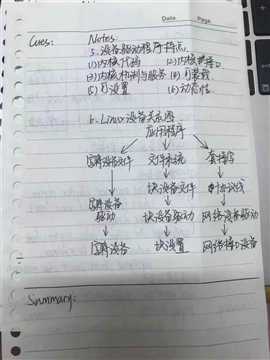 Date Page
Cues: Notes
5. 设备驱动程序特点
(1)内核代码 (2)内核接口
(3)内核机制与服务 (4)可装载
(5)可设置 (6)动态性
6. Linux设备关系图
应用程序
字符设备文件 文件系统 套接字
块设备文件 协议栈
字符设备驱动 块设备驱动 网络设备驱动
字符设备 块设置 网络接口设备
Summary: